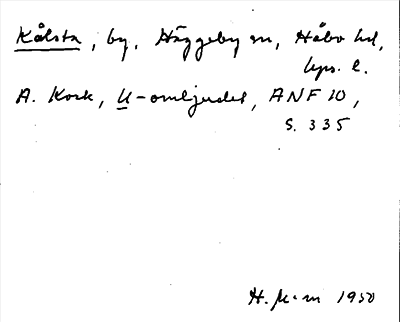 Kålsta, by, Häggeby sn, Håbo hd,
Upps. l.
A. Kock, U-omljudet, ANF 10,
S. 335
1950